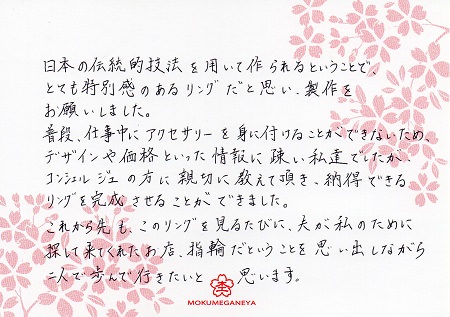 日本の伝統的技法を用いて作られるということで、
とても特別感のあるリングだと思い、製作を
お願いしました。
普段、仕事中にアクセサリーを身に付けることができないため、
デザインや価格といった情報に疎い私達でしたが、
コンシェルジュの方に親切に教えて頂き、納得できる
リングを完成させることができました。
これから先も、このリングを見るたびに、夫が私のために
探して来てくれたお店、指輪だということを思い出しながら
二人で歩んで行きたいと思います。
MOKUMEGANEYA